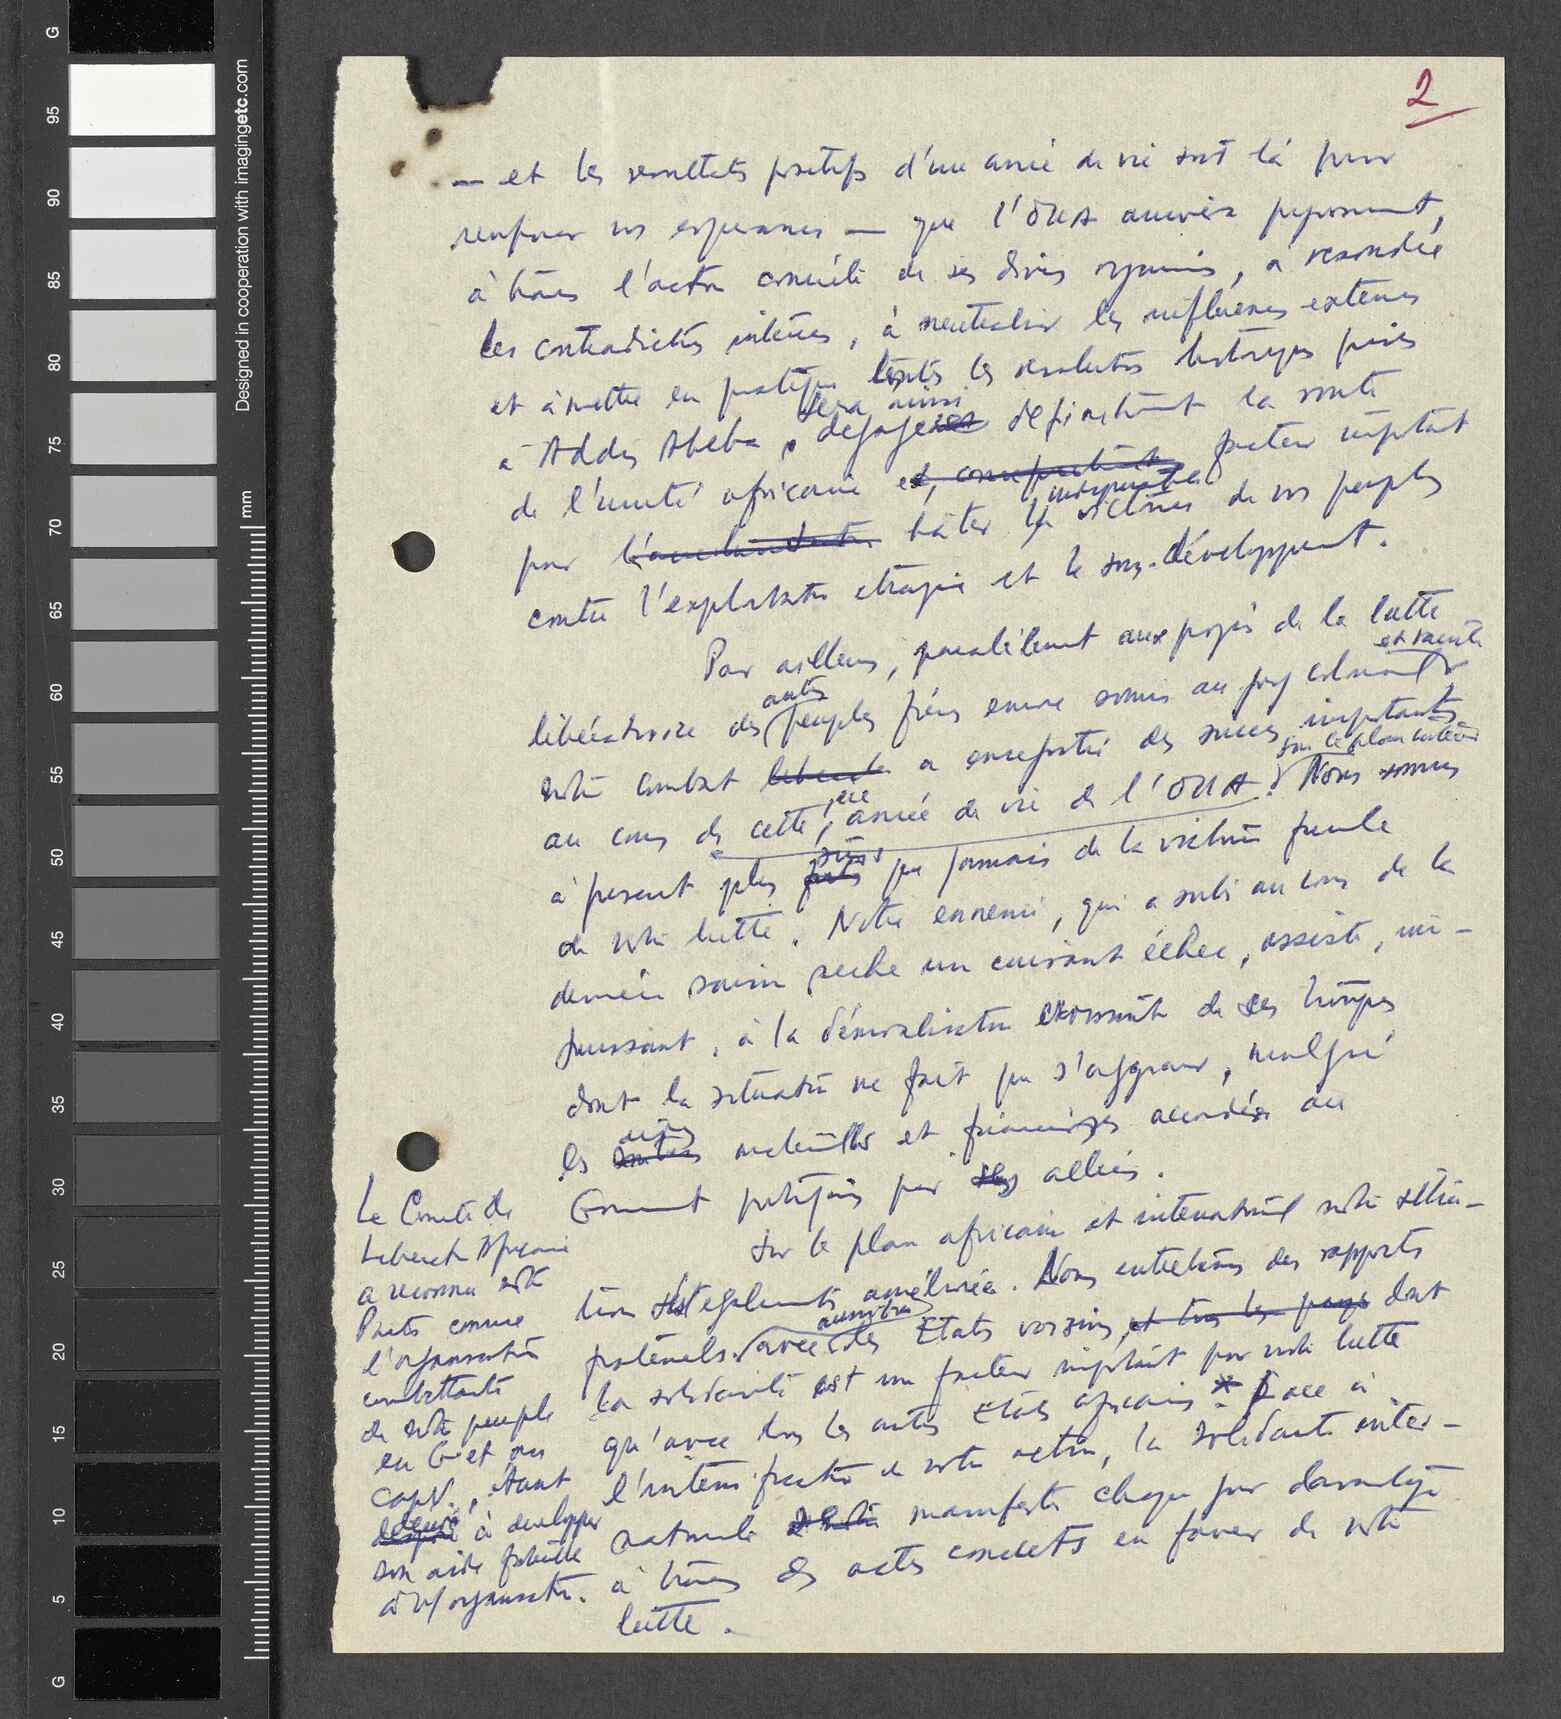 2
— et les resultats positifs d'une année de vie sont là pour
renforcer nos esperances — que l'OUA
à travers l'action de ses divers organismes, a resoudre
les contradictions internes, à neutraliser les influences externes
et à mettre en pratique toutes les resolutions historiques prises
à Addis Abeba, sera ainsi degagée definitivement la route
de l'unité africaine et, facteur important
pour hâter la victoire de nos peuples
contre l'exploitation etrangère et le sous-développement.
Par ailleurs, parallèlement aux progrès de la lutte
libératrice des autres peuples frères encore soumis au joug colonial et raciste
notre combat a enregistré des succès importants
au cours de cette 1ère année de vie de l'OUA. sur le plan intérieur Nous sommes
à present plus sûrs que jamais de la victoire finale
de notre lutte. Notre ennemi, qui a subi au cours de la
dernière saison seche un cuisant échec, assiste, im-
puissant, à la démoralisation croissante de ses troupes
dont la situation ne fait que s'aggraver, malgré
les aides materielles et financières accordées au
Gouvernement portugais par ses alliés.
Sur le plan africain et international notre situa-
tion s'est egalement améliorée. Nous entretenons des rapports
fraternels avec des Etats voisins, et tous les pays dont
la solidarité est un facteur important pour notre lutte
qu'avec tous les autres Etats africains. * Grace à
l'intensification de notre action, la solidarité inter-
nationale manifeste chaque jour davantage
à travers des actes concrets en faveur de notre
lutte.
Le Comité de
Liberation Africaine
a reconnu notre
Parti comme
l'organisation
combattante
de notre peuple
en G. et au
CapV., étant
decidé à developper
son aide fraternelle
à n/ organisation.
Designed in cooperation with imagingetc.com
mm
mm
G
95
90
85
80
75
70
65
60
55
50
45
40
35
30
25
20
15
10
5
G